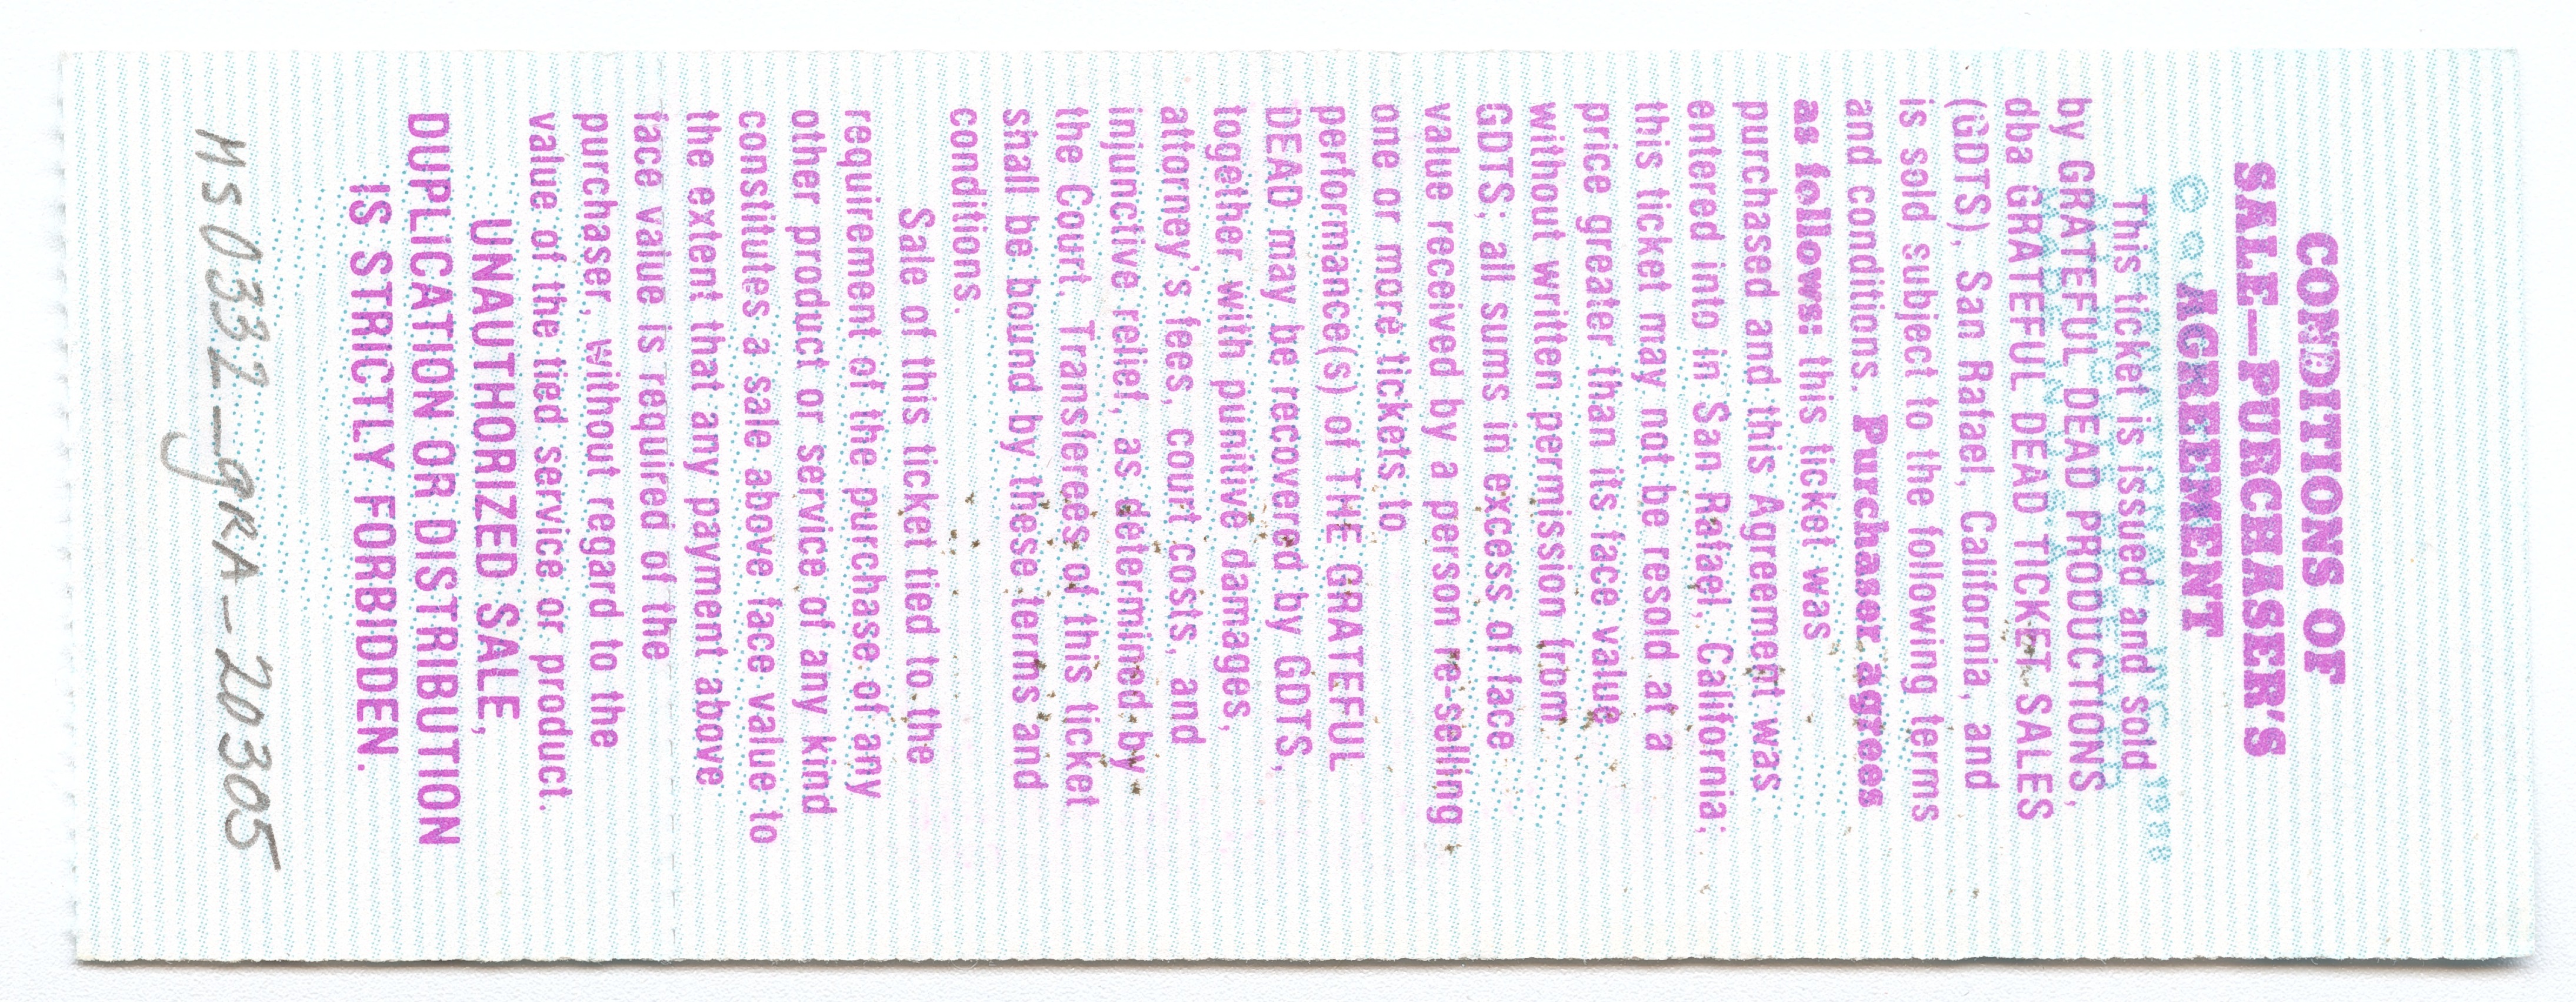 CONDITIONS OF
SALE—PURCHASER'S
AGREEMENT
This ticket is issued and sold
by GRATEFUL DEAD PRODUCTIONS,
dba GRATEFUL DEAD TICKET SALES
(GDTS), San Rafael, California, and
is sold subject to the following terms
and conditions. Purchaser agrees
as follows: this ticket was
purchased and this Agreement was
entered into in San Rafael, California;
this ticket may not be resold at a
price greater than its face value
without written permission from
GDTS; all sums in excess of face
value received by a person re-selling
one or more tickets to
performance(s) of THE GRATEFUL
DEAD may be recovered by GDTS,
together with punitive damages,
attorney's fees, court costs, and
injunctive relief, as determined by
the Court. Transferees of this ticket
shall be bound by these terms and
conditions.
Sale of this ticket tied to the
requirement of the purchase of any
other product or service of any kind
constitutes a sale above face value to
the extent that any payment above
face value is required of the
purchaser, without regard to the
value of the tied service or product.
UNAUTHORIZED SALE,
DUPLICATION OR DISTRIBUTION
IS STRICTLY FORBIDDEN.
MS0332_gRA_20305